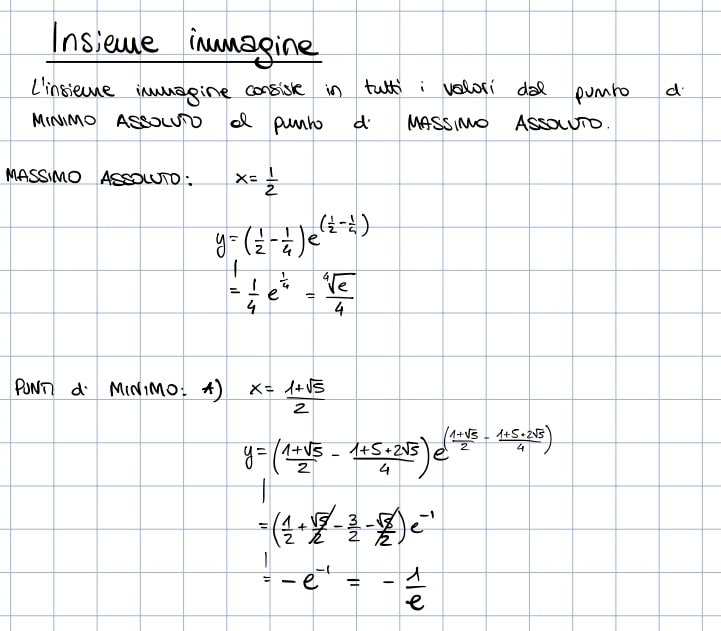 Insieme immagine
L'insieme immagine consiste in tutti i valori dal punto di
MINIMO ASSOLUTO al punto di MASSIMO ASSOLUTO.
MASSIMO ASSOLUTO: x = 1/2
y = (1/2 - 1/4) e^(1/2 - 1/4)
= 1/4 e^(1/4) = ⁴√e/4
PUNTI di MINIMO: A) x = (1+√5)/2
y = ((1+√5)/2 - (1+5+2√5)/4) e^((1+√5)/2 - (1+5+2√5)/4)
= (1/2 + √5/2 - 3/2 - √5/2) e^-1
= -e^-1 = - 1/e